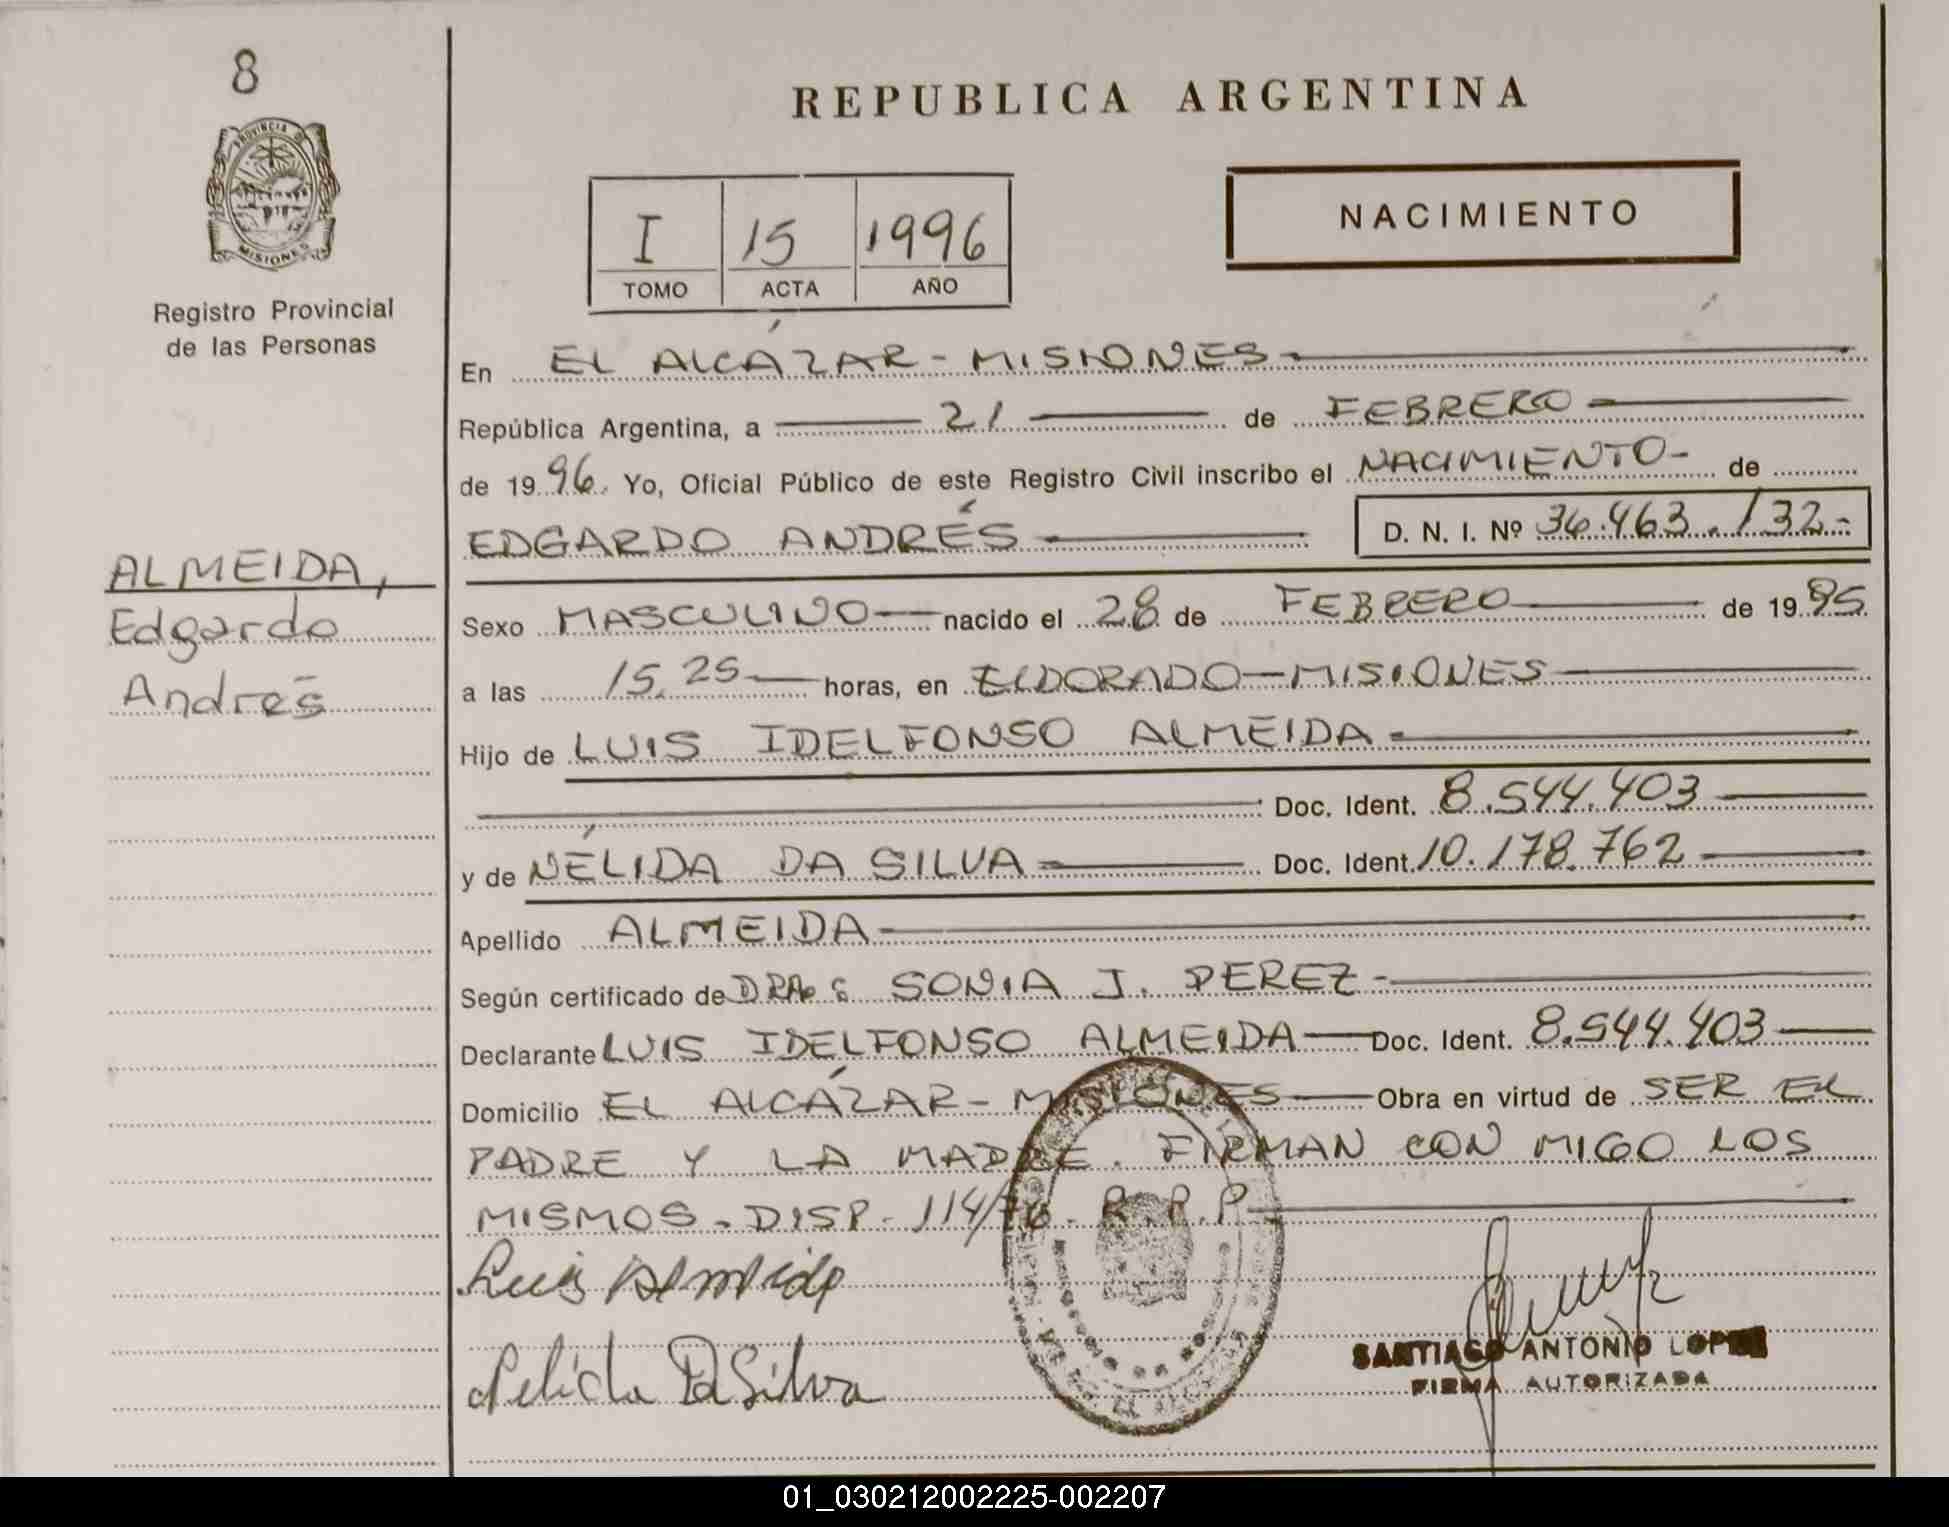 8
PROVINCIA DE
MISIONES
Registro Provincial
de las Personas
ALMEIDA,
Edgardo
Andrés
REPUBLICA ARGENTINA
I 15 1996
TOMO ACTA AÑO
NACIMIENTO
En EL ALCÁZAR - MISIONES
República Argentina, a 21 de FEBRERO
de 1996. Yo, Oficial Público de este Registro Civil inscribo el NACIMIENTO - de
EDGARDO ANDRÉS D. N. I. Nº 36.463.132-
Sexo MASCULINO nacido el 28 de FEBRERO de 1985
a las 15,25 horas, en ELDORADO - MISIONES
Hijo de LUIS IDELFONSO ALMEIDA
Doc. Ident. 8.544.403
y de NÉLIDA DA SILVA Doc. Ident. 10.178.762
Apellido ALMEIDA
Según certificado de DRA. SONIA J. PEREZ -
Declarante LUIS IDELFONSO ALMEIDA Doc. Ident. 8.544.403
Domicilio EL ALCÁZAR - MISIONES Obra en virtud de SER EL
PADRE Y LA MADRE. FIRMAN CON MIGO LOS
MISMOS. DISP. 114/76. R.P.P.
Luis Almeida
Nelida Da Silva
SANTIAGO ANTONIO LOPEZ
FIRMA AUTORIZADA
01_030212002225-002207